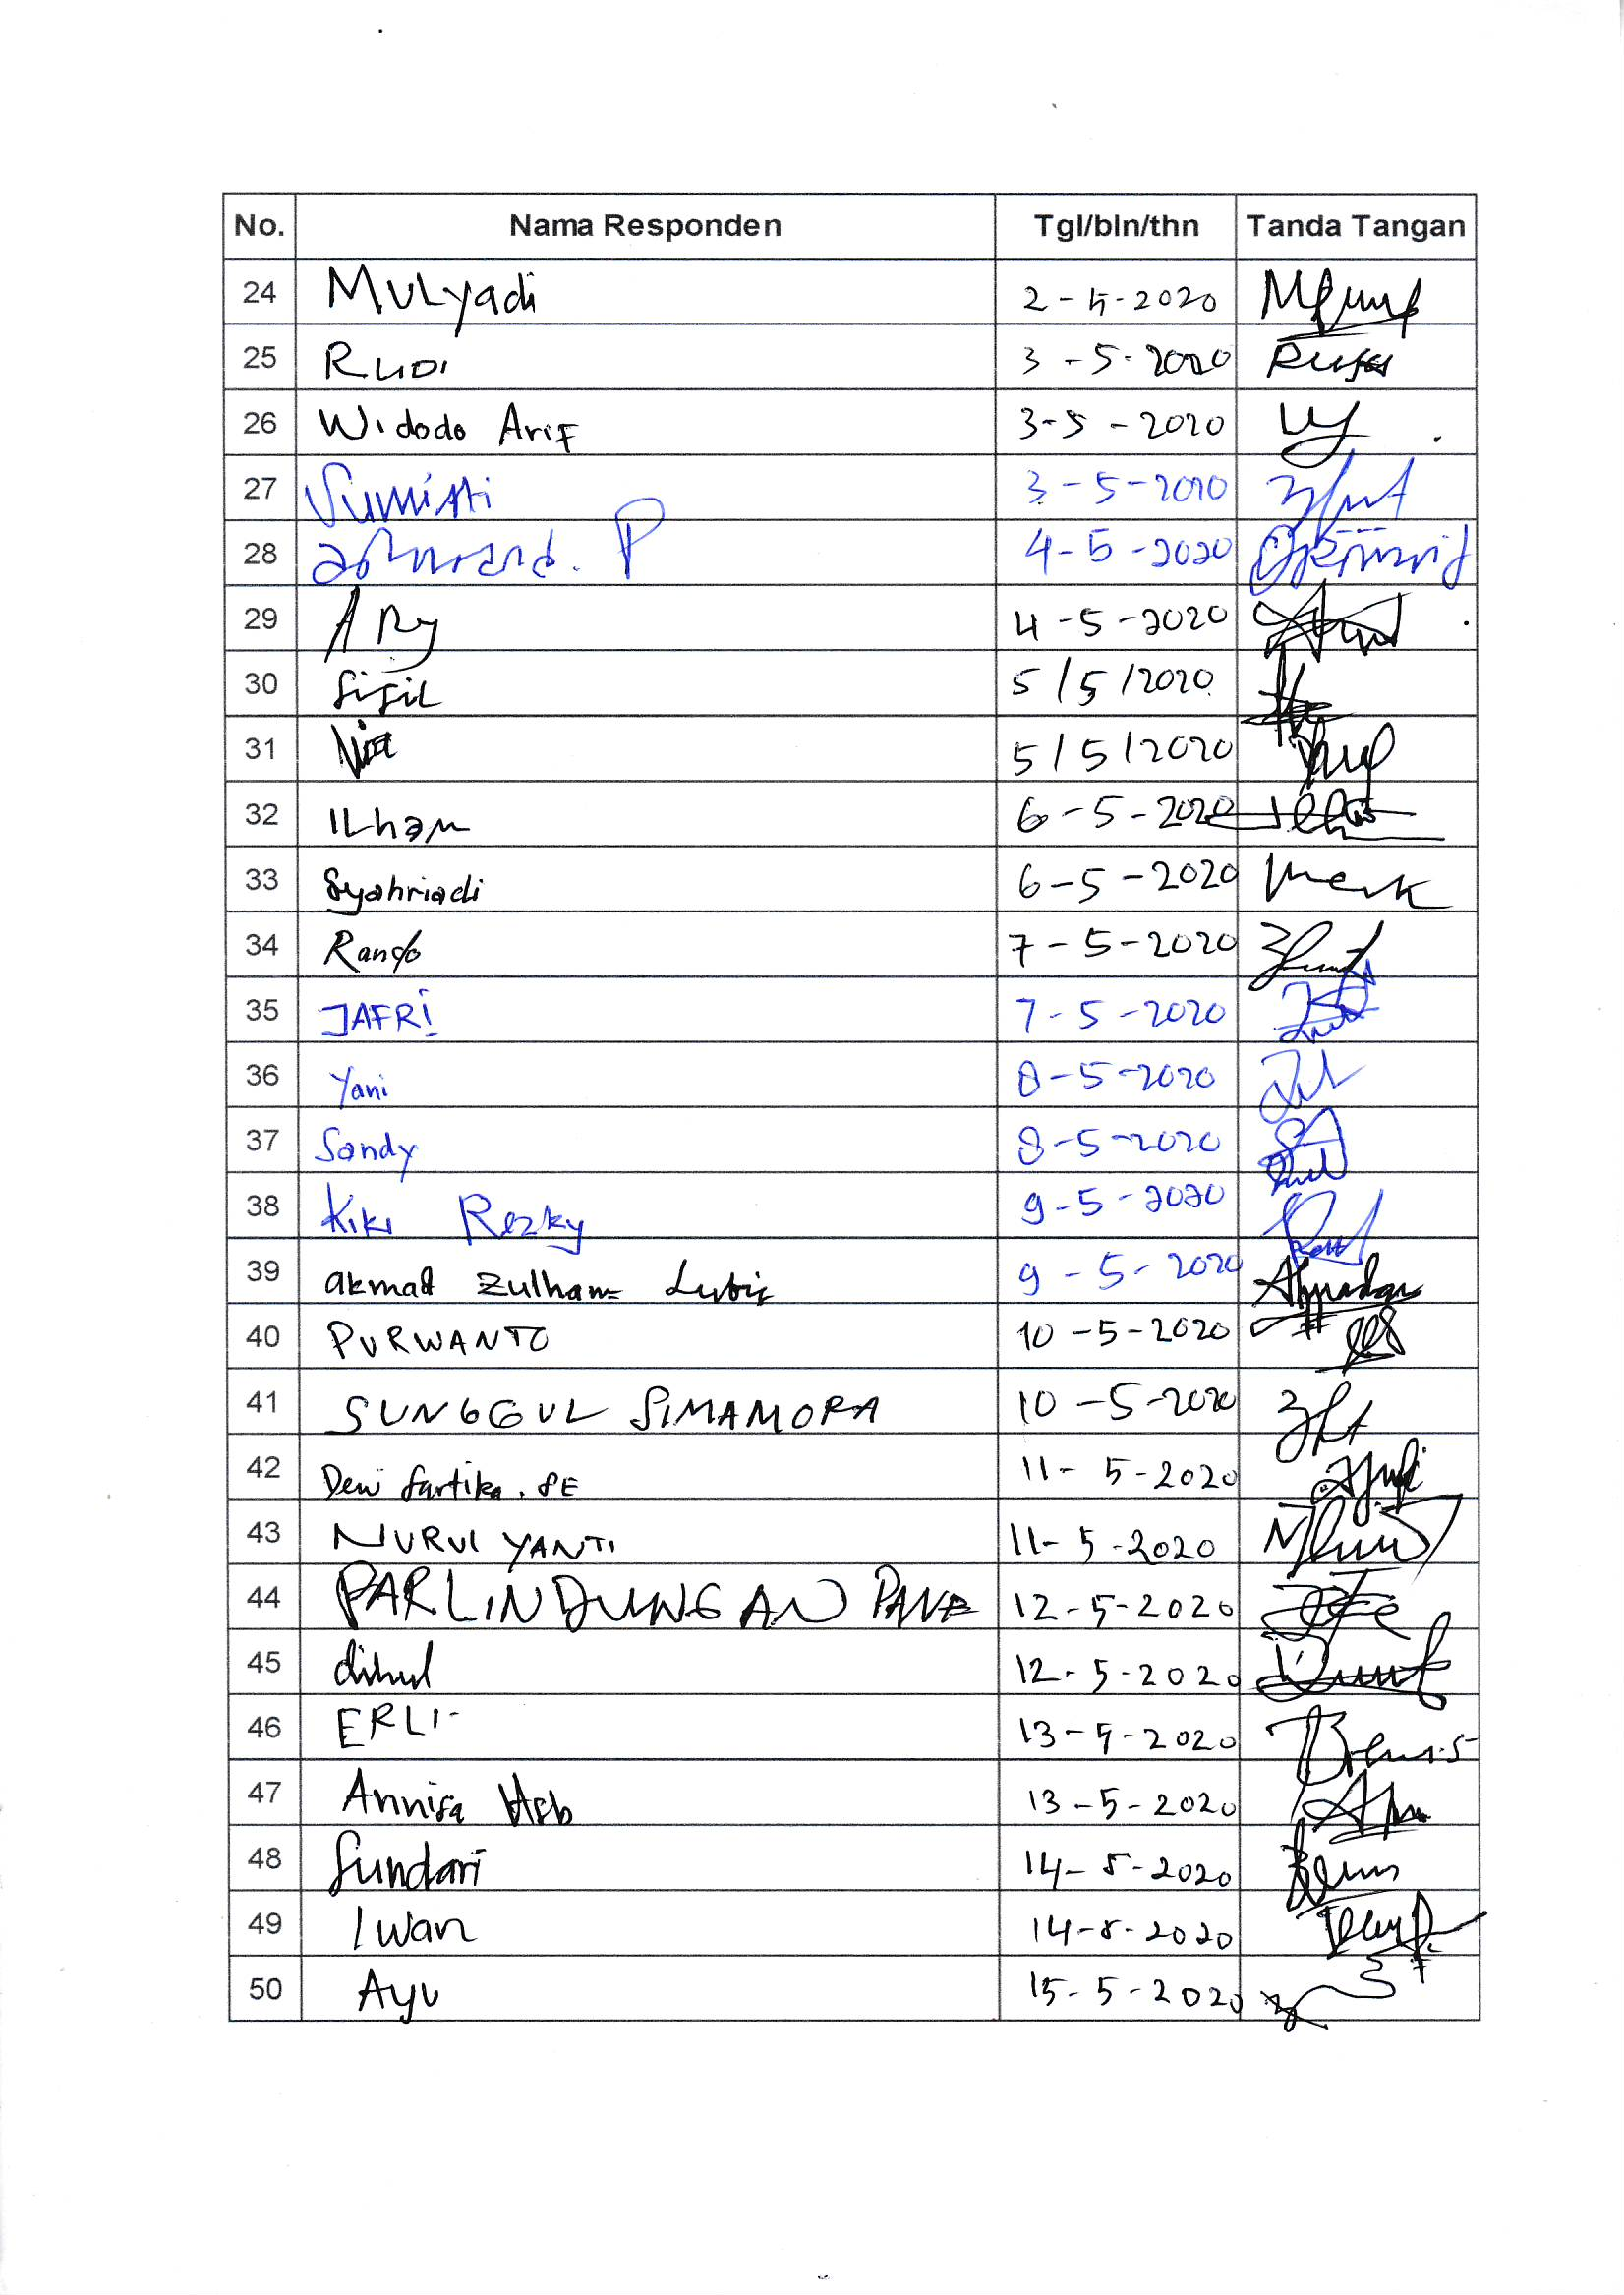 No. Nama Responden Tgl/bln/thn Tanda Tangan
24 MULyadi 2-5-2020
25 RUDI 3-5-2020
26 Widodo Arif 3-5-2020
27 3-5-2020
28 4-5-2020
29 ARy 4-5-2020
30 5/5/2020
31 5/5/2020
32 ILham 6-5-2020
33 Syahriadi 6-5-2020
34 7-5-2020
35 JAFRi 7-5-2020
36 Yani 8-5-2020
37 Sandy 8-5-2020
38 Kiki Rezky 9-5-2020
39 akmad Zulham Lubis 9-5-2020
40 PURWANTO 10-5-2020
41 SUNGGUL SIMAMORA 10-5-2020
42 Dewi Sartika. SE 11-5-2020
43 NURUL YANTI 11-5-2020
44 PARLINDUNGAN PANE 12-5-2020
45 12-5-2020
46 ERLI 13-5-2020
47 Annisa Hsb 13-5-2020
48 Sundari 14-5-2020
49 Iwan 14-5-2020
50 Ayu 15-5-2020